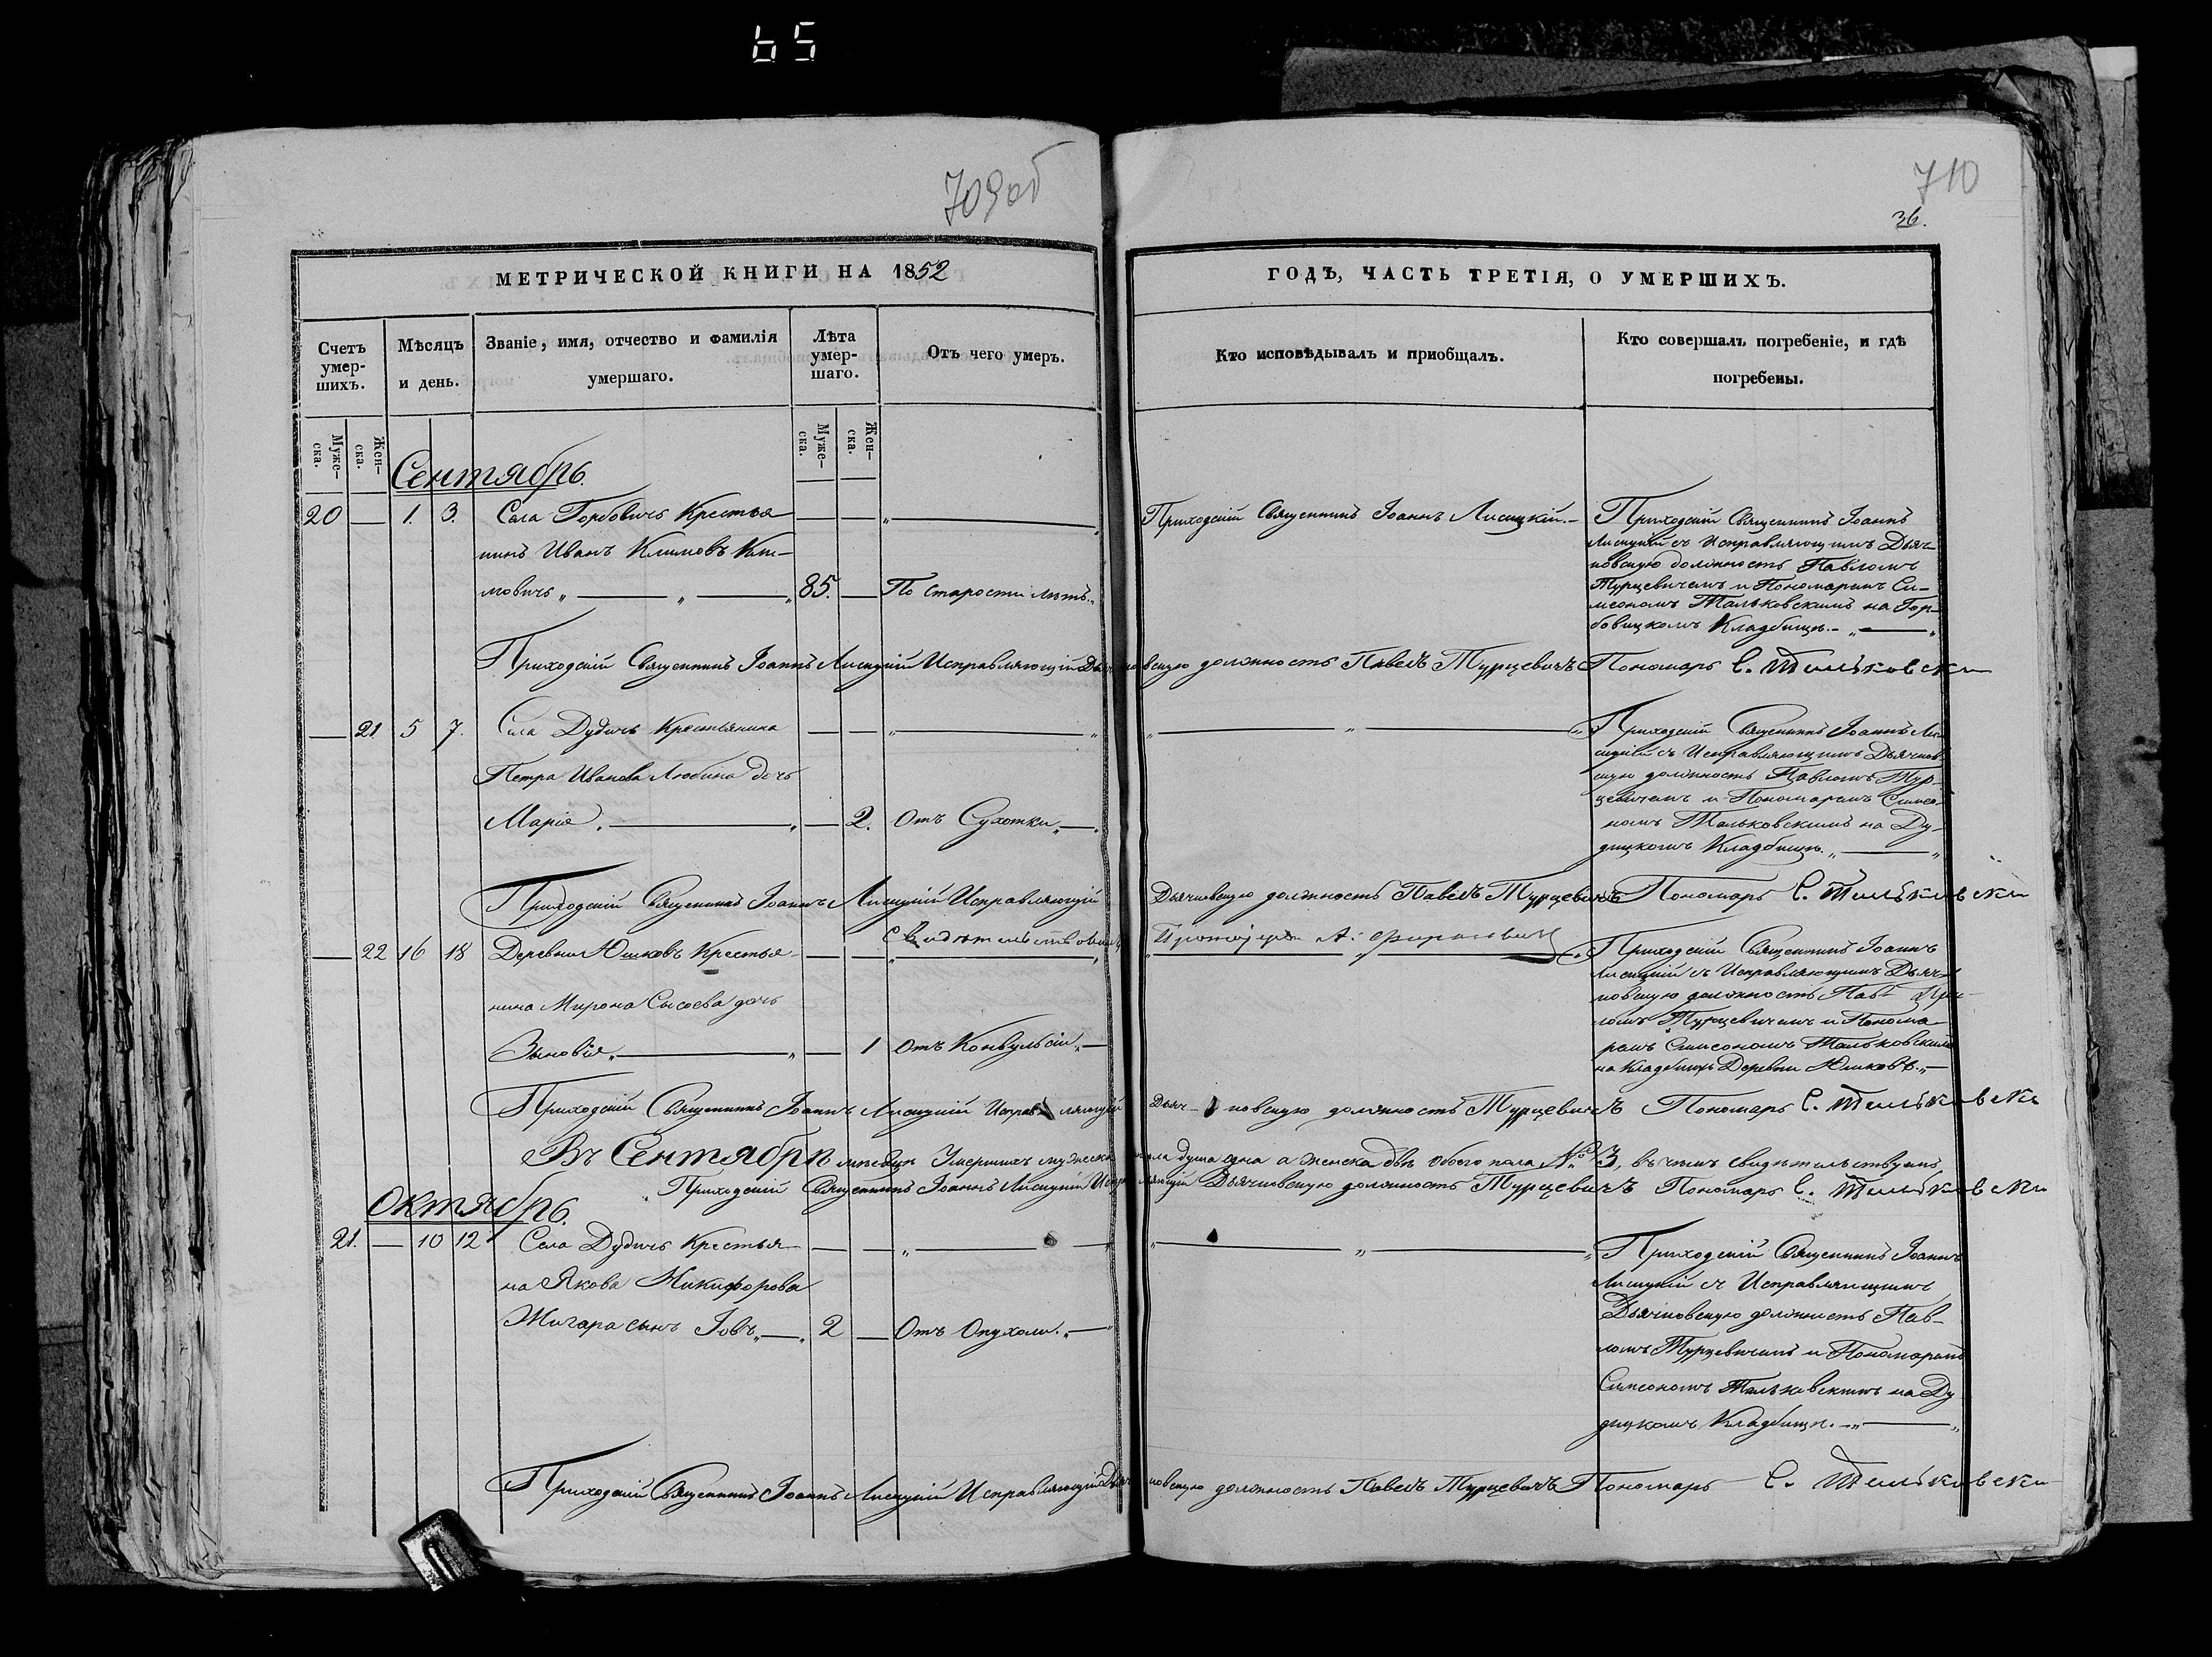 65
709об
710
36.
МЕТРИЧЕСКОЙ КНИГИ НА 1852
ГОДЪ, ЧАСТЬ ТРЕТІЯ, О УМЕРШИХЪ.
Счетъ умер-шихъ.
Мѣсяцъ и день.
Званіе, имя, отчество и фамилія умершаго.
Лѣта умер-шаго.
Отъ чего умеръ.
Кто исповѣдывалъ и пріобщалъ.
Кто совершалъ погребеніе, и гдѣ погребены.
Муже-ска.
Жен-ска.
Муже-ска.
Жен-ска.
Сентябрь.
20 — 1. 3. Села Горбовичъ Крестья
нинъ Иванъ Климовъ Кли-
мовичъ „ — „ — „ 85. — По Старости лѣтъ.„
Приходскій Священникъ Іоаннъ Лисицкій.—
Приходскій Священникъ Іоаннъ
Лисицкій съ Исправляющимъ Дьяч-
ковскую должность Павломъ
Турцевичемъ и Пономаремъ Си-
меономъ Тальковскимъ на Гор-
бовицкомъ Кладбищѣ.—„—„
Приходскій Священникъ Іоаннъ Лисицкій Исправляющій Дьячковскую должность Павелъ Турцевичъ Пономарь С. Тальковски
— 21 5 7. Села Дудичъ Крестьянина
Петра Иванова Любина дочь
Марія „ — „ — 2. Отъ Сухотки „—„
Приходскій Священникъ Іоаннъ Ли-
сицкій съ Исправляющимъ Дьячков-
скую должность Павломъ Тур-
цевичемъ и Пономаремъ Симео-
номъ Тальковскимъ на Ду-
дицкомъ Кладбищѣ.„ — „
Приходскій Священникъ Іоаннъ Лисицкій Исправляющій Дьячковскую должность Павелъ Турцевичъ Пономарь С. Тальковски
Свидѣтельствовалъ Протоіерей А.
— 22 16 18 Деревни Юшковъ Крестья-
нина Мирона Сысоева дочь
Зыновія „ — „ — 1 Отъ Конвульсіи „—
Приходскій Священникъ Іоаннъ
Лисицкій съ Исправляющимъ Дьяч-
ковскую должность Пав-
ломъ Турцевичемъ и Понома
ремъ Симеономъ Тальковскимъ
на Кладбищѣ Деревни Юшковъ.„—
Приходскій Священникъ Іоаннъ Лисицкій Исправляющій Дьяч-ковскую должность Турцевичъ Пономарь С. Тальковски
Въ Сентябрѣ мѣсяцѣ Умершихъ мужеска пола душа одна а женска двѣ обоего пола № 3, въ чемъ свидѣтельствуемъ
Приходскій Священникъ Іоаннъ Лисицкій Исправляющій Дьячковскую должность Турцевичъ Пономарь С. Тальковски
Октябрь.
21. — 10 12 Села Дудичъ Крестья-
на Якова Никифорова
Жигара сынъ Іовъ „—„ 2 — Отъ Опухоли.„—„
Приходскій Священникъ Іоаннъ
Лисицкій съ Исправляющимъ
Дьячковскую должность Пав-
ломъ Турцевичемъ и Пономаремъ
Симеономъ Тальковскимъ на Ду
дицкомъ Кладбищѣ.—„ — „
Приходскій Священникъ Іоаннъ Лисицкій Исправляющій Дьячковскую должность Павелъ Турцевичъ Пономарь С. Тальковски